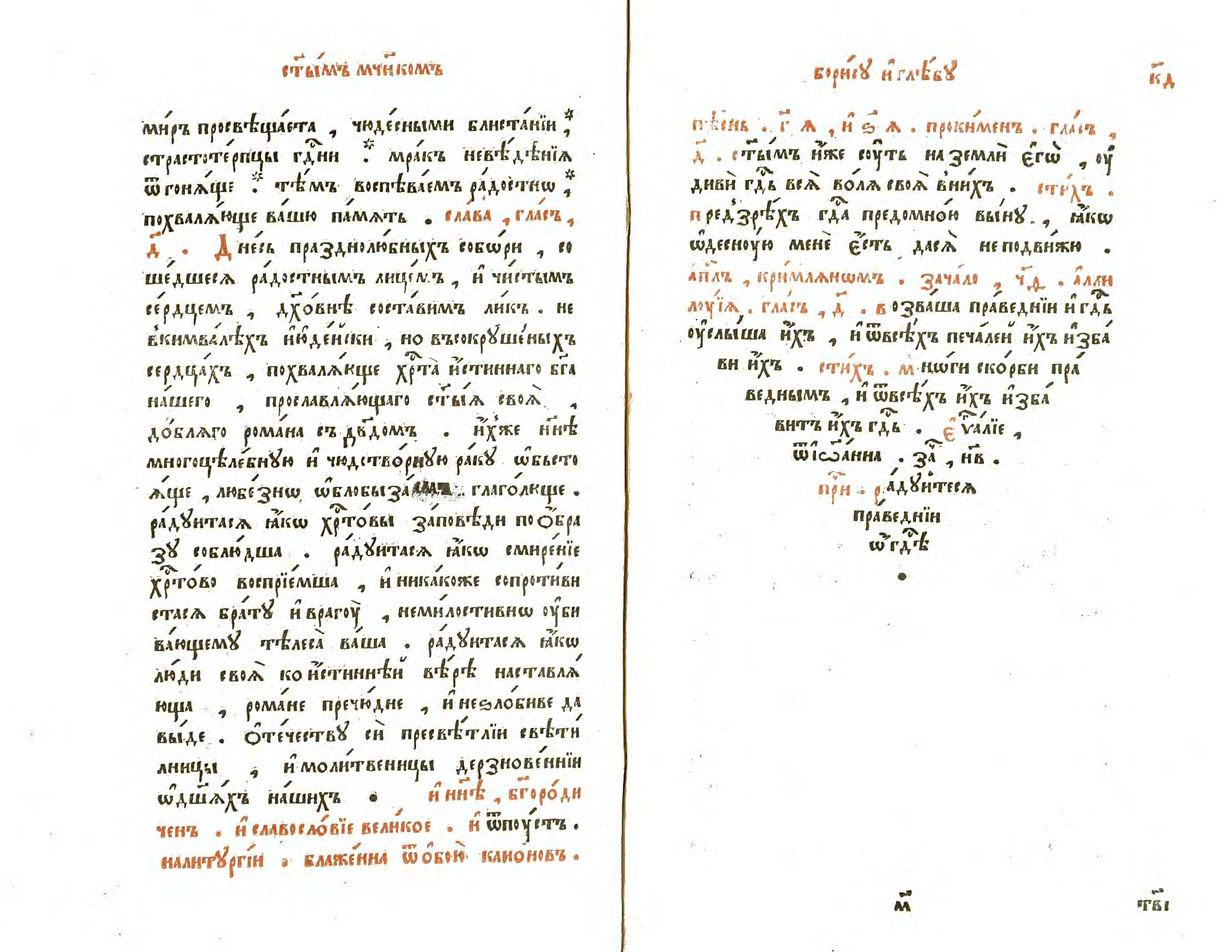 ст҃ы́мъ мч҃нкомъ
ми́ръ просвѣща́ета , чюде́сными блиста́нїи ,҆
страстоте́рпцы гдⷭ҇ни : мра́къ невѣ́дѣнїѧ
ѿгонѧ́юще : тѣ́мъ воспѣва́емъ ра́достнѡ ,
похвалѧ́юще ва́шю па́мѧть . сла́ва , гла́съ ,
д҃ . Дне́сь празднолю́бныхъ собѡ́ри , со
ше́дшесѧ ра́достнымъ лице́мъ , и҆ чи́стымъ
се́рдцемъ , дх҃о́внѣ соста́вимъ ли́къ . не
в҆кимва́лѣхъ и҆юде́йски , но въсокруше́ныхъ
сердца́хъ , похвалѧ́юще хрⷭ҇та̀ и҆́стиннаго бг҃а
на́шего , прославлѧ́ющаго ст҃ы́ѧ своѧ̀ ,
до́блѧго рома́на съ дв҃домъ . и҆́хже нн҃ѣ
многоцѣле́бную и҆ чюдство́рную ра́ку ѡ҆бьсто
ѧ́ще , любе́знѡ ѡ҆блобыза глаго́люще .
ра́дуитасѧ ꙗ҆́кѡ хрⷭ҇то́вы за́повѣди по ѻ҆́бра
зꙋ соблю́дша . ра́дуитасѧ ꙗ҆́кѡ смире́нїе
хрⷭ҇то́во воспрїе́мша , и҆ ника́коже сопроти́ви
стасѧ бра́тꙋ и҆ врагоу̀ , неми́лостивнѡ оу҆би
ва́ющемꙋ тѣлеса̀ ва́ша . ра́дуитасѧ ꙗ҆́кѡ
лю́ди своѧ̀ ко и҆́стиннѣй вѣ́рѣ наставлѧ́
юща , рома́не пречю́дне , и҆ неѕло́биве да
вы́де . Ѻ҆те́чествꙋ сѝ пресвѣ́тлїи свѣти́
лницы , и҆ моли́твеницы дерзнове́ннїи
ѡ҆дш҃ѧ́хъ на́шихъ . и҆ нн҃ѣ , бг҃оро́ди
ченъ . и҆ славосло́вїе вели́кое . и҆ ѿпоу́стъ .
налитꙋргі́и . блаже́нна ѿ ѻ҆бою̀ кано́новъ .
бори́сꙋ и҆ глѣ́бꙋ
к҃д
пѣ́снь . г҃ ѧ , и҆ ѕ҃ ѧ . проки́менъ . гла́съ ,
д҃ . ст҃ы́мъ и҆́же соу́ть на землѝ є҆гѡ̀ , оу҆
дивѝ гдⷭ҇ь всѧ̀ во́лѧ своѧ̀ в҆ни́хъ . сти́хъ .
предзрѣ́хъ гдⷭ҇а предомно́ю вы́ну , ꙗ҆́кѡ
ѡ҆десноую менѐ є҆́сть дасѧ̀ неподви́жю .
а҆пⷭ҇лъ , кри́млѧнѡмъ . зача́ло , ч҃д . а҆лли
лоу́їѧ . гла́съ , д҃ . возва́ша пра́веднїи и҆ гдⷭ҇ь
оу҆слы́ша и҆́хъ , и҆ ѿвсѣ́хъ печа́лей и҆́хъ и҆зба́
ви и҆́хъ . сти́хъ . мнѡ́ги ско́рби пра́
веднымъ , и҆ ѿвсѣ́хъ и҆́хъ и҆зба́
витъ и҆́хъ гдⷭ҇ь . є҆ѵⷢ҇а́лїе ,
ѿ і҆ѡа́нна . за҃ , нв҃ .
при́ч . ра́дуйтесѧ
пра́веднїи
ѡ҆ гдⷭ҇ѣ
м҃
твⷪ҇і